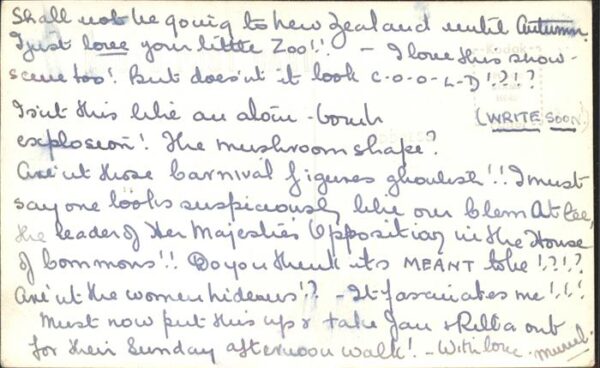 Shall not be going to New Zealand until Autumn.
I just love your little Zoo!! - I love this snow-
scene too! But does'nt it look C-O-O-L-D!?!?
Is'nt this like an atom-bomb (WRITE SOON)
explosion! The mushroom shape?
Are'nt those Carnival figures ghoulish!! I must
say one looks suspiciously like our Clem Atlee,
the leader of Her Majesties Opposition in the House
of Commons!! Do you think it's MEANT to be!?!?
Are'nt the women hideous!? - It fascinates me!!!
Must now put this up & take Jan & out
for their Sunday afternoon walk! - With love. Muriel.